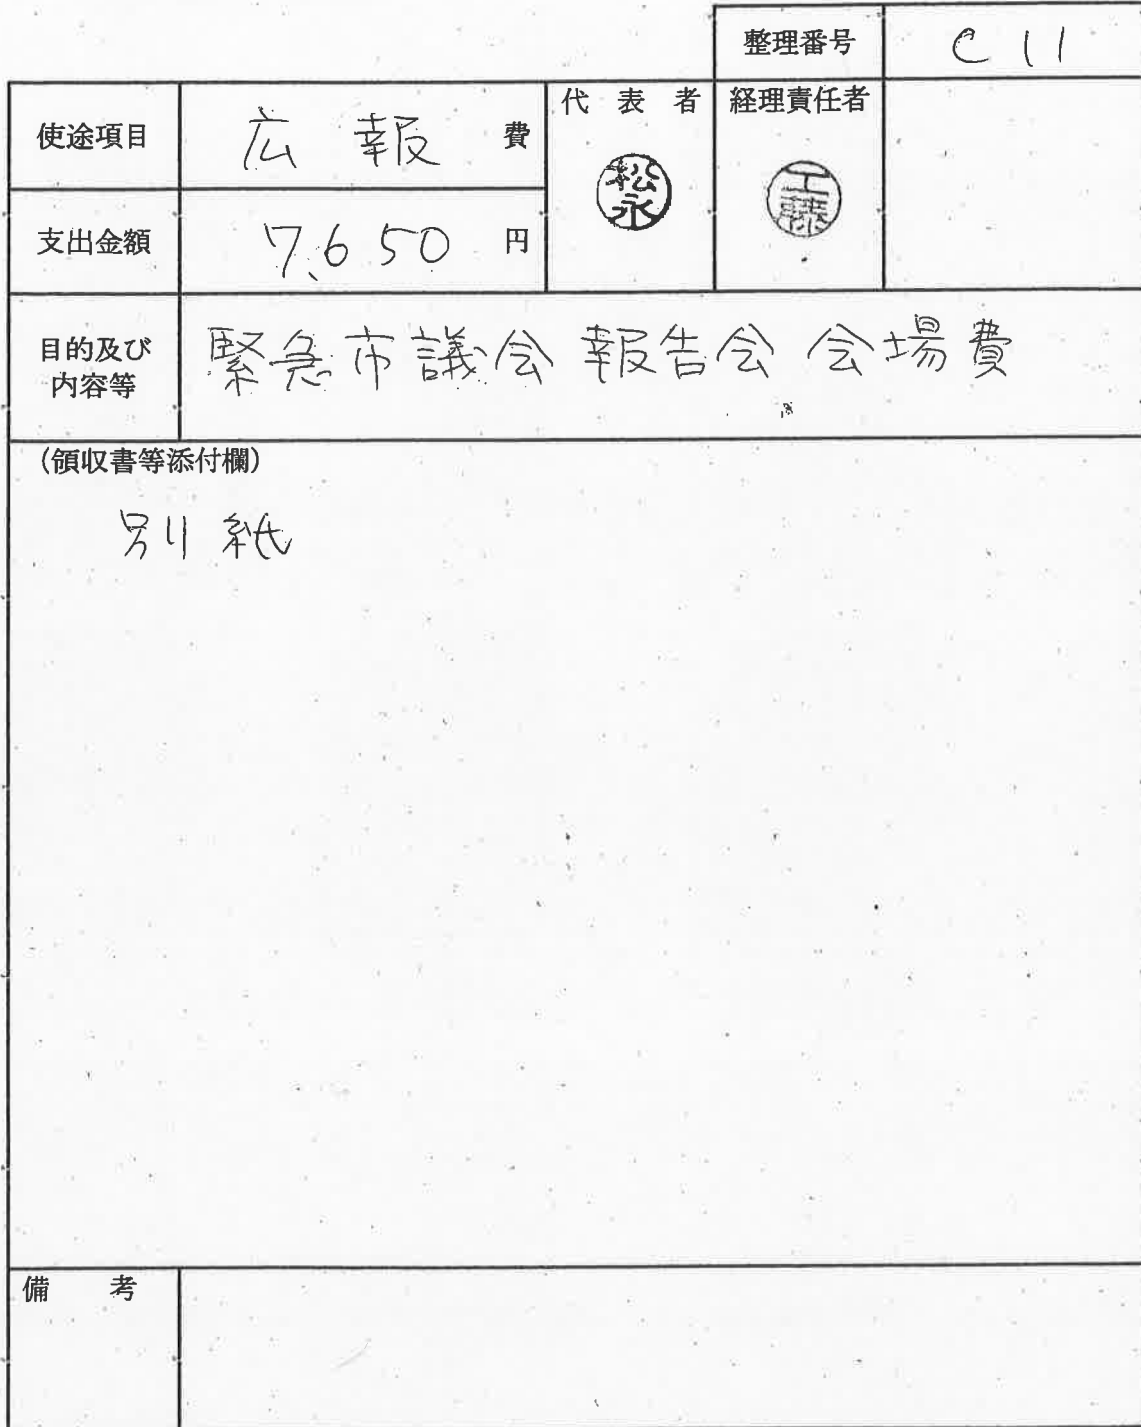 整理番号 C11
使途項目 広報 費
代表者 経理責任者
松永 工藤
支出金額 7,650 円
目的及び内容等 緊急市議会報告会 会場費
(領収書等添付欄)
別紙
備考